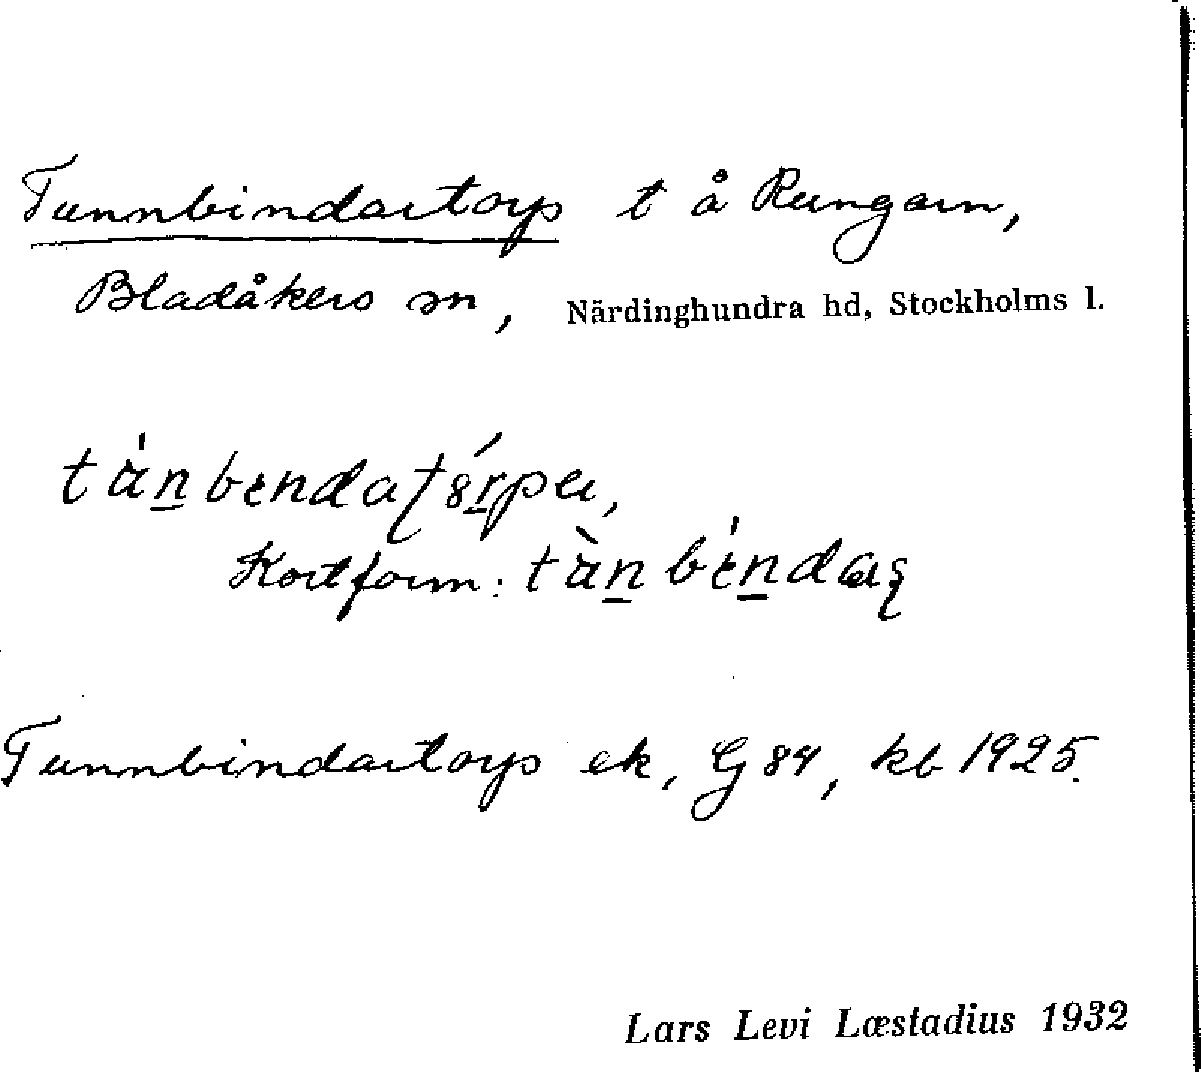 Tunnbindartorp t å Rungarn,
Bladåkers sn, Närdinghundra hd, Stockholms l.
Kortform:
Tunnbindartorp ek, G 84, kb 1925.
Lars Levi Læstadius 1932